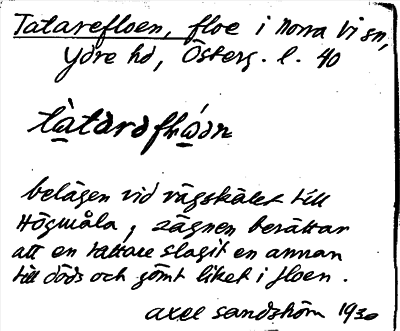 Tatarefloen, floe i Norra Vi sn,
Ydre hd, Österg. l. 40
belägen vid vägskälet till
Högmåla, sägnen berättar
att en tattare slagit en annan
till döds och gömt liket i floen.
Axel Sandström 1930